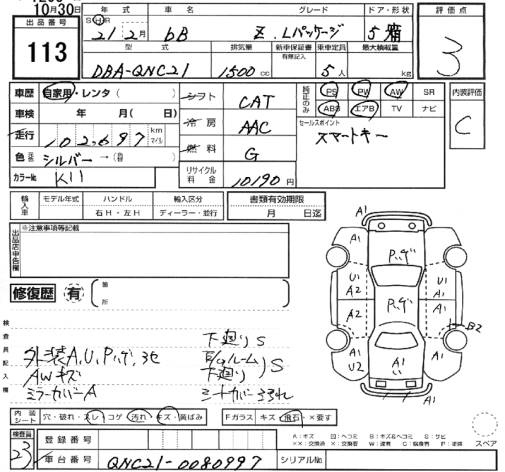 10月30日
出品番号
113
年式 車名 グレード ドア・形状
21 2月 bB Z Lパッケージ 5 箱
型式 排気量 新車保証書 有無記入 乗車定員 最大積載量
DBA-QNC21 1500cc 5人 kg
評価点
3
内装評価
C
車歴 自家用・レンタ( )
車検 年 月( 日)
走行 102,697 km マイル
色 シルバー → (色替)
カラー№ K11
シフト CAT
冷房 AAC
燃料 G
リサイクル料金 10190円
純正のみ PS PW AW SR
ABS エアB TV ナビ
セールスポイント
スマートキー
輸入車 モデル年式 ハンドル 輸入区分
右H・左H ディーラー・並行
書類有効期限
月 日迄
出品店申告欄
※注意事項等記載
修復歴 有 箇所
検査員記入欄
外装A,U,Pハゲ,ヨゴ
AWキズ
ミラーカバーA
下廻りS
E/gルームS
下廻り
シートカバーヨゴレ
内装シート 穴・破れ・スレ コゲ 汚れ キズ・黄ばみ
Fガラス キズ 飛石 ×要す
A1 A1
Pハゲ
U1 A1
A2 A1
Pハゲ
A1 A1
B2
U2 A1
A1
A：キズ U：ヘコミ B：キズ&ヘコミ S：サビ
スペア
検査員
23
登録番号
車台番号 QNC21-0080997 シリアル№